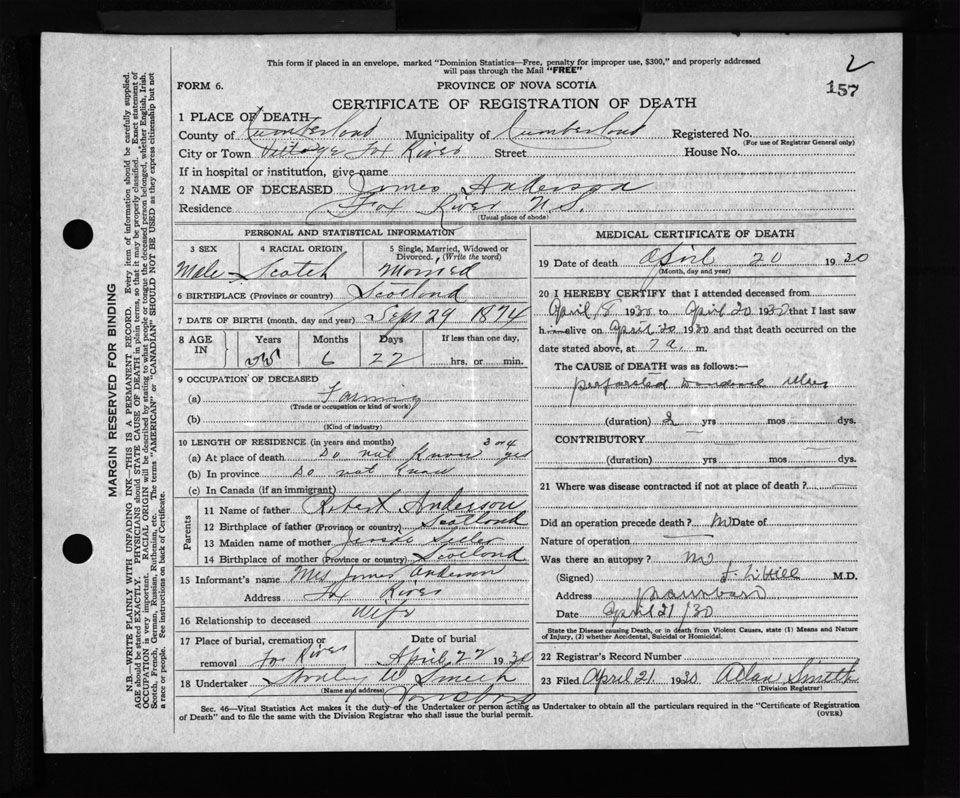 This form if placed in an envelope, marked "Dominion Statistics—Free, penalty for improper use, $300," and properly addressed
will pass through the Mail "FREE"
2
FORM 6.
PROVINCE OF NOVA SCOTIA
157
CERTIFICATE OF REGISTRATION OF DEATH
1 PLACE OF DEATH
County of Cumberland Municipality of Cumberland Registered No.
(For use of Registrar General only)
City or Town Village Fox River Street House No.
If in hospital or institution, give name
2 NAME OF DECEASED James Anderson
Residence Fox River N.S.
(Usual place of abode)
PERSONAL AND STATISTICAL INFORMATION
3 SEX 4 RACIAL ORIGIN 5 Single, Married, Widowed or Divorced. (Write the word)
Male Scotch Married
6 BIRTHPLACE (Province or country) Scotland
7 DATE OF BIRTH (month, day and year) Sept 29 1874
8 AGE IN Years Months Days If less than one day,
6 22 hrs. or min.
9 OCCUPATION OF DECEASED
(a) Farming
(Trade or occupation or kind of work)
(b)
(Kind of industry)
10 LENGTH OF RESIDENCE (in years and months)
(a) At place of death Do not know 3 or 4 yrs
(b) In province Do not know
(c) In Canada (if an immigrant)
Parents
11 Name of father Robert Anderson
12 Birthplace of father (Province or country) Scotland
13 Maiden name of mother
14 Birthplace of mother (Province or country) Scotland
15 Informant's name Mrs James Anderson
Address Fox River
16 Relationship to deceased Wife
17 Place of burial, cremation or removal Fox River
Date of burial April 22 1930
18 Undertaker W Smith
(Name and address)
MEDICAL CERTIFICATE OF DEATH
19 Date of death April 20 1930
(Month, day and year)
20 I HEREBY CERTIFY that I attended deceased from
April 18 1930 to April 20 1930 that I last saw
him alive on April 20 1930 and that death occurred on
date stated above, at 7 a. m.
The CAUSE OF DEATH was as follows:—
perforated ulcer
(duration) 2 yrs mos dys.
CONTRIBUTORY
(duration) yrs mos dys.
21 Where was disease contracted if not at place of death?
Did an operation precede death? no Date of
Nature of operation
Was there an autopsy? no
(Signed) Hill M.D.
Address Parrsboro
Date April 21/30
State the Disease causing Death, or in death from Violent Causes, state (1) Means and Nature
of Injury, (2) whether Accidental, Suicidal or Homicidal.
22 Registrar's Record Number
23 Filed April 21 1930 Allan Smith
(Division Registrar)
Sec. 46—Vital Statistics Act makes it the duty of the Undertaker or person acting as Undertaker to obtain all the particulars required in the "Certificate of Registration
of Death" and to file the same with the Division Registrar who shall issue the burial permit.
(OVER)
MARGIN RESERVED FOR BINDING
N.B.—WRITE PLAINLY WITH UNFADING INK—THIS IS A PERMANENT RECORD. Every item of information should be carefully supplied.
AGE should be stated EXACTLY. PHYSICIANS should STATE CAUSE OF DEATH in plain terms, so that it may be properly classified. Exact statement of
OCCUPATION is very important. RACIAL ORIGIN will be described by stating to what people or tongue the deceased person belonged, whether English, Irish,
Scotch, French, German, Russian, Ruthenian, etc. The terms "AMERICAN" or "CANADIAN" SHOULD NOT BE USED as they express citizenship but not
a race or people. See instructions on back of Certificate.